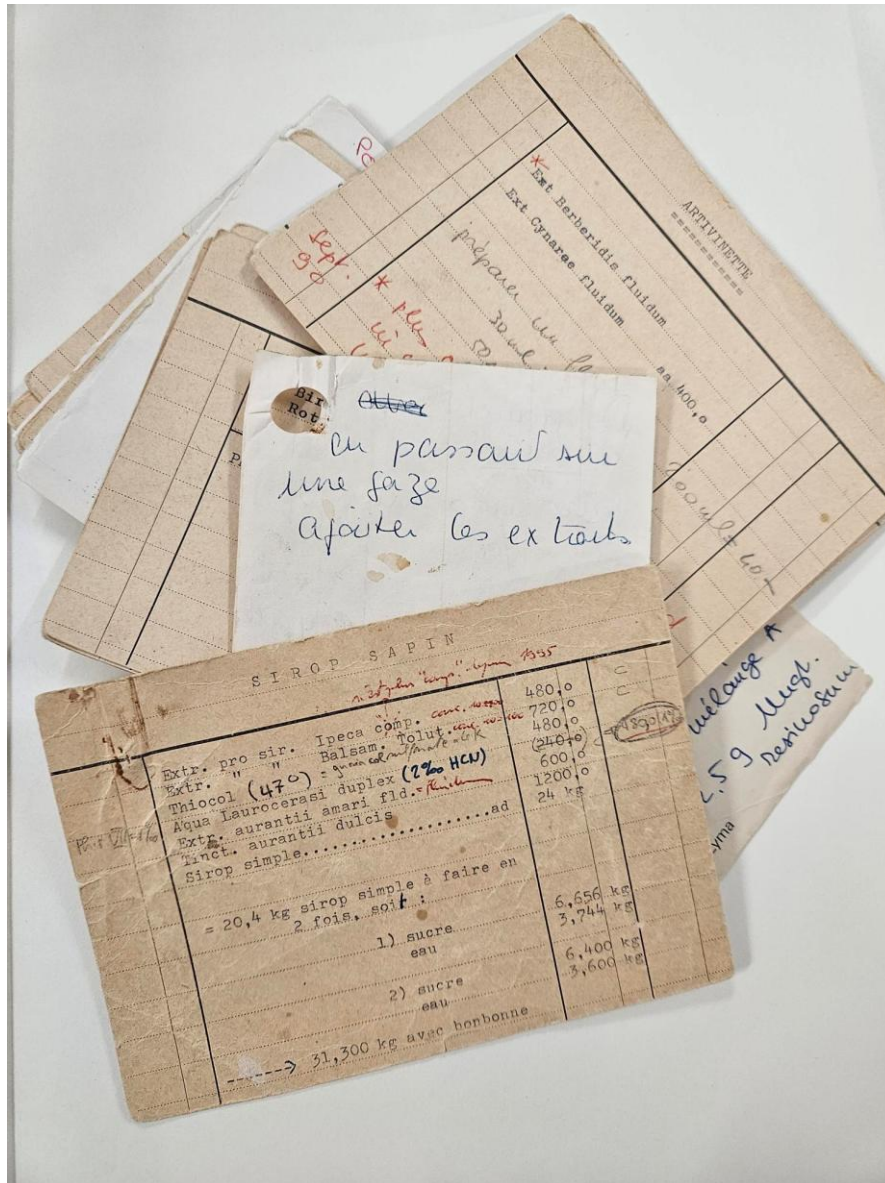 ARTIVINETTE
* Ext Berberidis fluidum
Ext Cynarae fluidum aa 400,0
préparer un
30 ml
50
Sept.
90
* plus
Bir
Rot.
en passant sur
une gaze
ajouter les extraits
mélange A
2,5 g Ungt.
resinosum
yma
SIROP SAPIN
n'est plus "comp." depuis 1995
Extr. pro sir. Ipeca comp. 480,0 C
Extr. " " Balsam. Tolut. 720,0 C
Thiocol (470) 480,0
Aqua Laurocerasi duplex (2‰ HCN) (240,0)
Extr. aurantii amari fld. 600,0
Tinct. aurantii dulcis 1200,0
Sirop simple....................ad 24 kg
= 20,4 kg sirop simple à faire en
2 fois, soit :
1) sucre 6,656 kg
eau 3,744 kg
2) sucre 6,400 kg
eau 3,600 kg
------> 31,300 kg avec bonbonne